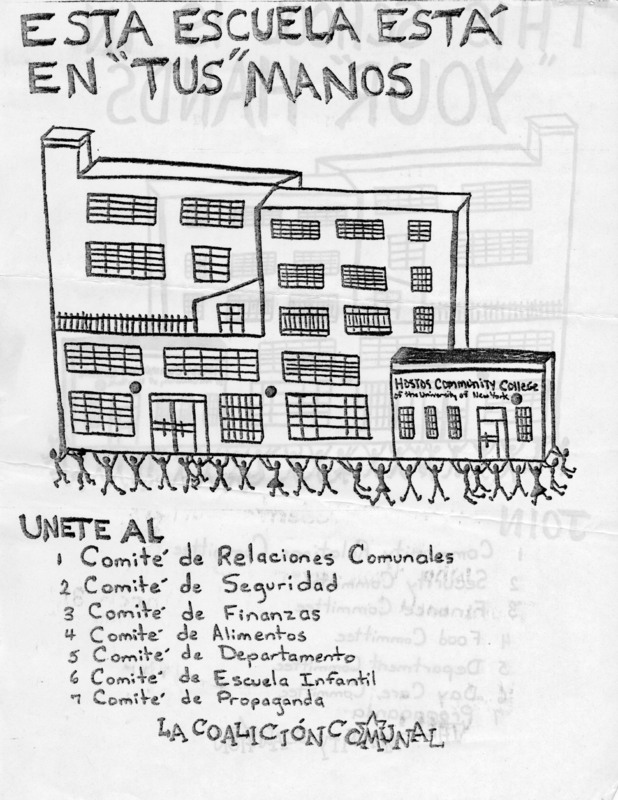 ESTA ESCUELA ESTÁ
EN "TUS" MANOS
Hostos Community College
of the University of New York
UNETE AL
1 Comité de Relaciones Comunales
2 Comité de Seguridad
3 Comité de Finanzas
4 Comité de Alimentos
5 Comité de Departamento
6 Comité de Escuela Infantil
7 Comité de Propaganda
LA COALICIÓN COMUNAL